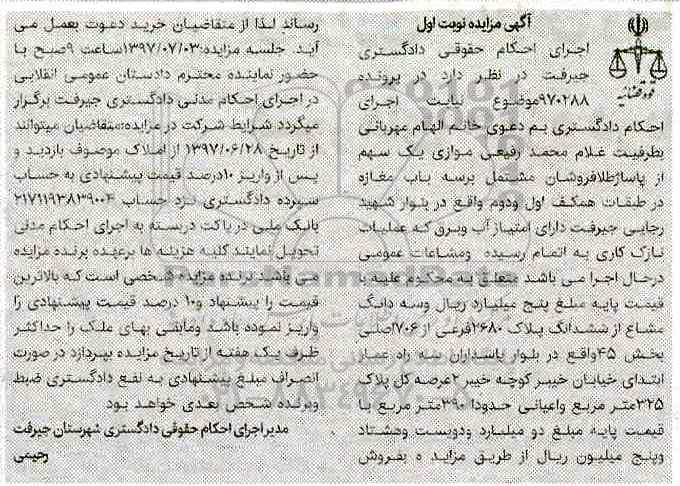 آگهی مزایده نوبت اول
اجرای احکام حقوقی دادگستری
جیرفت در نظر دارد در پرونده
۹۷۰۲۸۸موضوع نیابت اجرای
احکام دادگستری بم دعوی خانم الهام مهربانی
بطرفیت غلام محمد رفیعی موازی یک سهم
از پاساژطلافروشان مشتمل برسه باب مغازه
در طبقات همکف اول ودوم واقع در بلوار شهید
رجایی جیرفت دارای امتیاز آب وبرق که عملیات
نازک کاری به اتمام رسیده ومشاعات عمومی
درحال اجرا می باشد متعلق به محکوم علیه با
قیمت پایه مبلغ پنج میلیارد ریال وسه دانگ
مشاع از ششدانگ پلاک ۲۶۸۰فرعی از ۷۰۶اصلی
بخش ۴۵واقع در بلوار پاسداران سه راه عمار
ابتدای خیابان خیبر کوچه خیبر ۲عرصه کل پلاک
۳۲۵متر مربع واعیانی حدودا ۳۹۰متر مربع با
قیمت پایه مبلغ دو میلیارد ودویست وهشتاد
وپنج میلیون ریال از طریق مزاید ه بفروش
رساند لذا از متقاضیان خرید دعوت بعمل می
آید. جلسه مزایده:۱۳۹۷/۰۷/۰۳ساعت ۹صبح با
حضور نماینده محترم دادستان عمومی انقلابی
در اجرای احکام مدنی دادگستری جیرفت برگزار
میگردد شرایط شرکت در مزایده:متقاضیان میتوانند
از تاریخ ۱۳۹۷/۰۶/۲۸ از املاک موصوف بازدید و
پس از واریز ۱۰درصد قیمت پیشنهادی به حساب
سپرده دادگستری نزد حساب ۲۱۷۱۱۹۳۸۳۹۰۰۴
بانک ملی در پاکت دربسته به اجرای احکام مدنی
تحویل نمایند کلیه هزینه ها برعهده برنده مزایده
می باشد برنده مزایده شخصی است که بالاترین
قیمت را پیشنهاد و۱۰ درصد قیمت پیشنهادی را
واریز نموده باشد ومابقی بهای ملک را حداکثر
ظرف یک هفته از تاریخ مزایده بپردازد در صورت
انصراف مبلغ پیشنهادی به نفع دادگستری ضبط
وبرنده شخص بعدی خواهد بود
مدیر اجرای احکام حقوقی دادگستری شهرستان جیرفت
رحیمی
قوه قضائیه
ParsNamadData